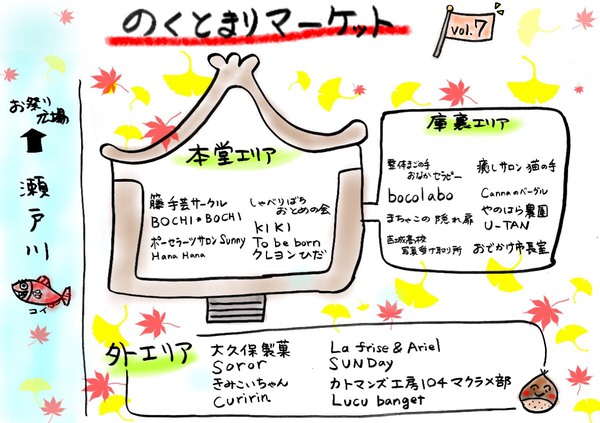 のくとまりマーケット
vol.7
お祭り
広場
瀬戸川
コイ
本堂エリア
籐手芸サークル
BOCHI*BOCHI
ポーセラーツサロンSunny
Hana Hana
しゃべりばち
おとめの会
KIKI
To be born
クレヨンひだ
庫裏エリア
整体まごの手
おなかセラピー
bocolabo
まちゃこの隠れ扉
吉城高校
写真受け取り所
癒しサロン猫の手
Cannaのバーグル
やのはら農園
U-TAN
おでかけ市長室
外エリア
大久保製菓
Soror
きみこいちゃん
Curirin
La frise & Ariel
SUNDay
カトマンズ工房104マクラメ部
Lucu banget